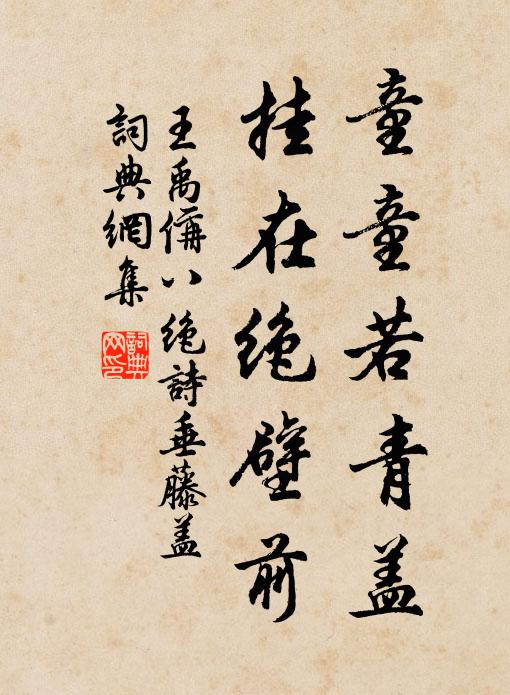 童童若青盖
挂在绝壁前
王禹偁八绝詩垂藤盖
詞典網集
詞典網印